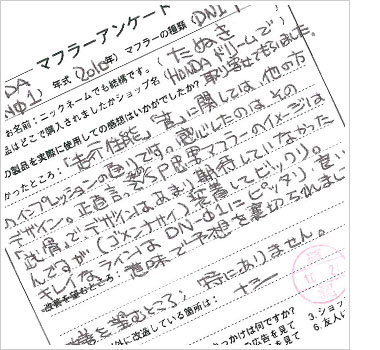 マフラーアンケート
年式(2010年) マフラーの種類(DN-1
お名前：ニックネームでも結構です。(たぬき
品はどこで購入されましたかショップ名(HONDAドリームで
取り寄せてもらいました。
の製品を実際に使用しての感想はいかがでしたか?
かったところ：「走行性能」「音」に関しては、他の方
のインプレッションの通りです。感じしたのは、その
デザイン。正直言
マフラーのイメージは
「武骨」でデザインはあまり期待していなかった
んですが(ゴメンナサイ)装着してビックリ。
キレイなラインはDN-01にピッタリ!良い
意味で予想を裏切られまし
改善を望むところ：特にありません。
以外に改造している箇所は：
っかけは何ですか?
の広告を見て
3.ショッ
6.友人に